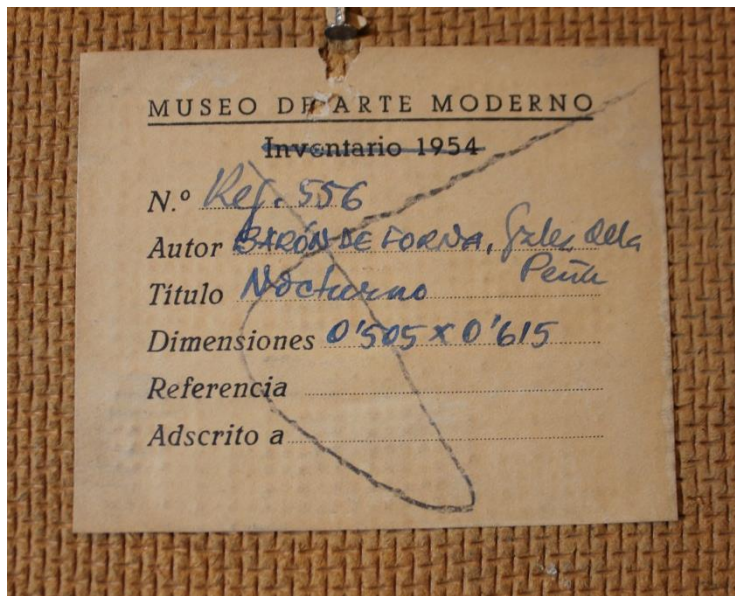 MUSEO DE ARTE MODERNO
Inventario 1954
N.º Ref. 556
Autor BARÓN DE FORNA, Gzlez dela
Peña
Título Nocturno
Dimensiones 0'505 x 0'615
Referencia
Adscrito a